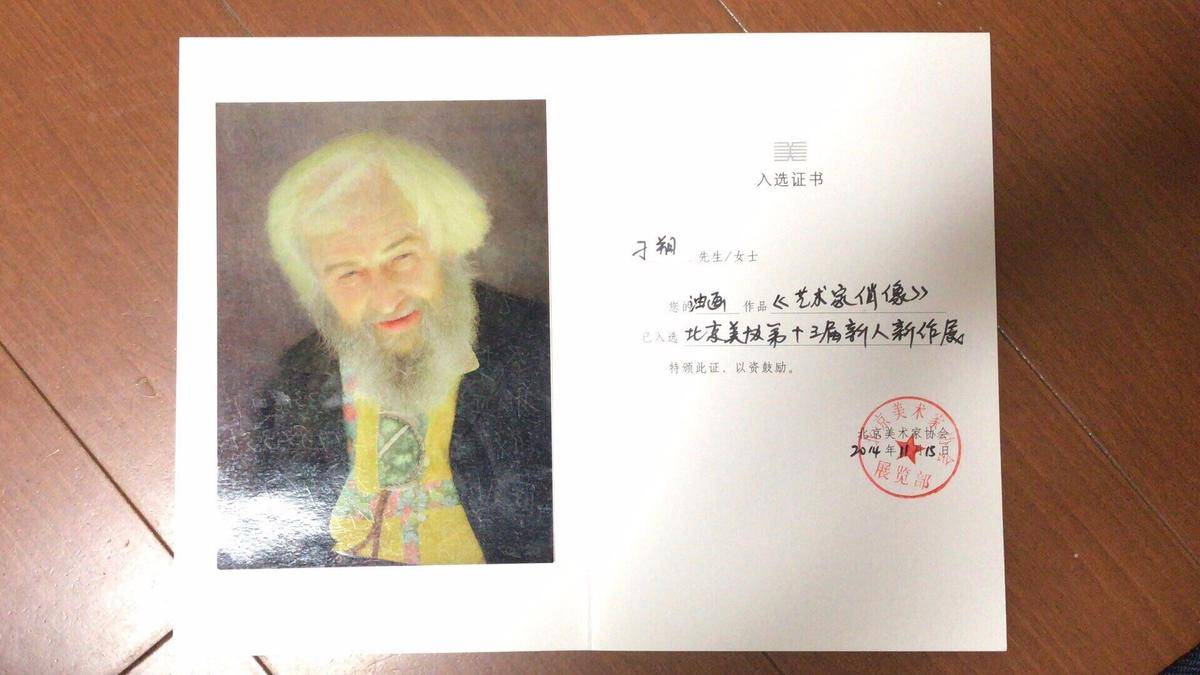 入选证书
刁朔 先生/女士
您的油画 作品《艺术家肖像》
已入选 北京美协第十三届新人新作展
特颁此证，以资鼓励。
北京美术家协会
2014年11月15日
北京美术家协会
展览部